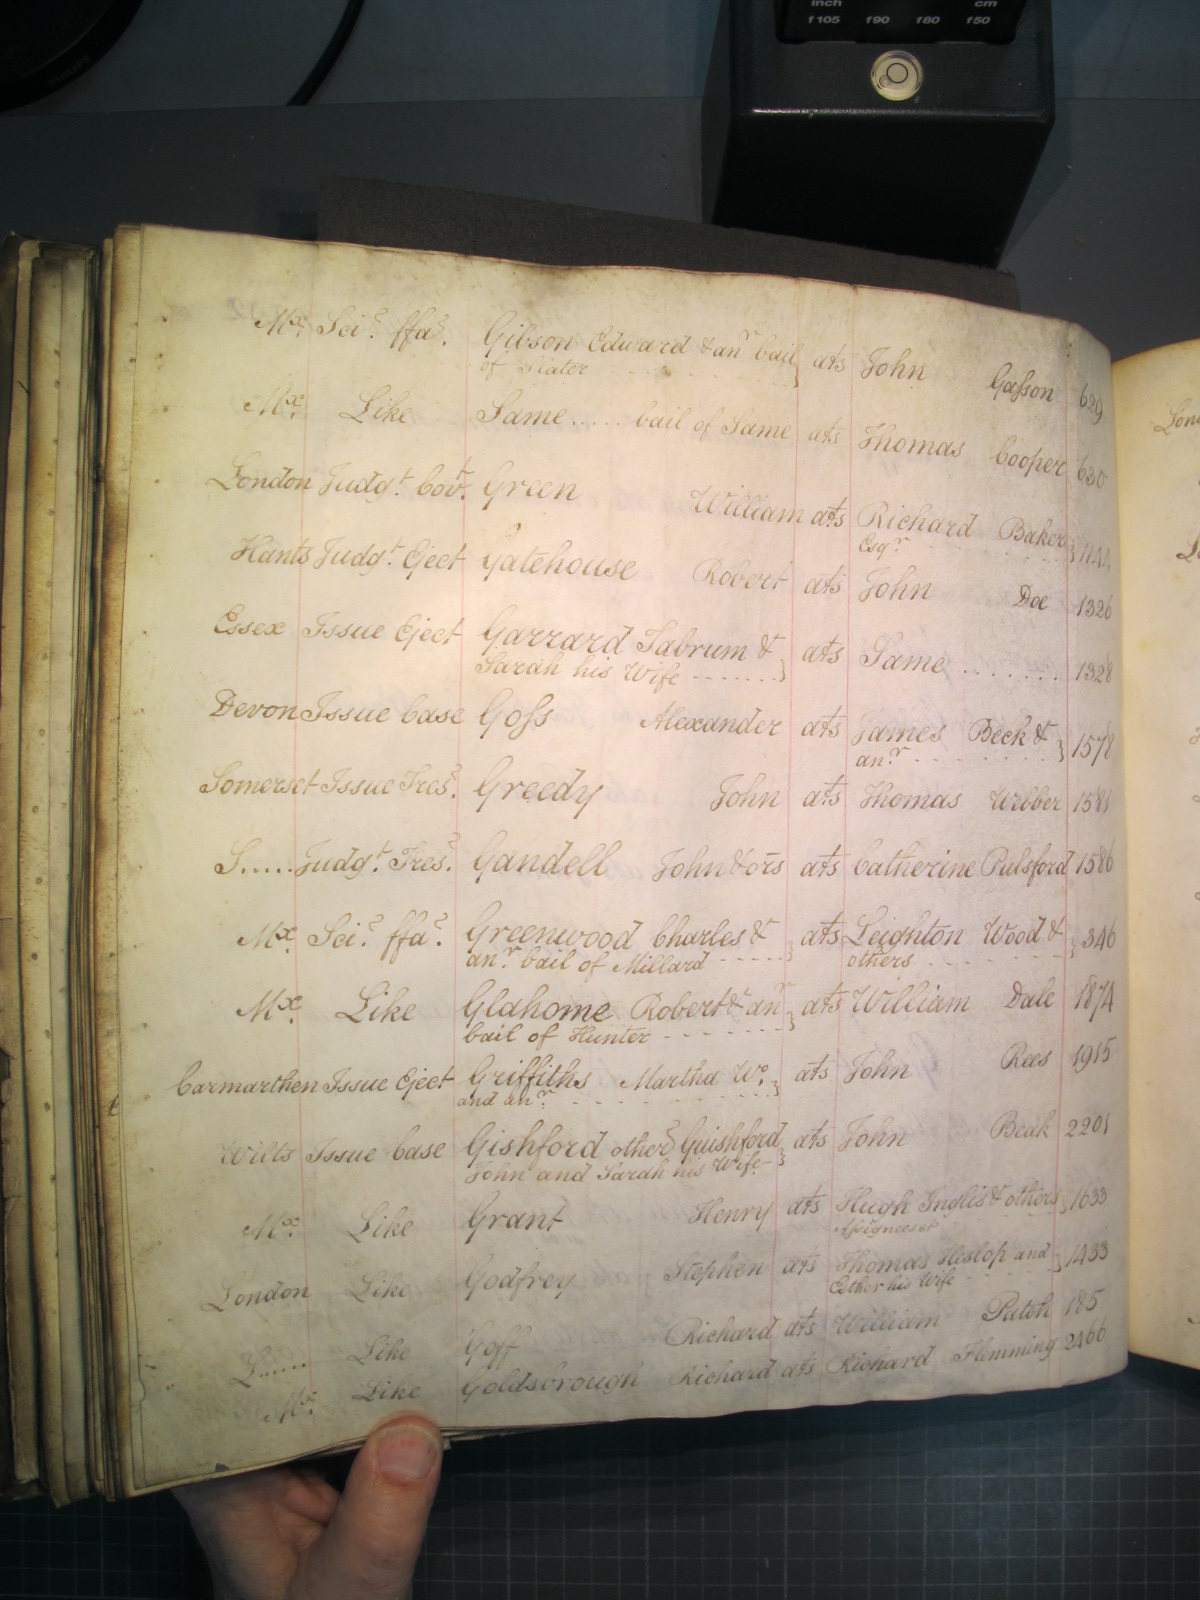 inch cm
f105 f90 f80 f50
PHILIPS
Mx. Sci? ffa?. Gibson Edward & anr bail ats John Gasson 629
of Slater
Mx. Like Same ..... bail of Same ats Thomas Cooper 630
London Judgt. Covt. Green William ats Richard Baker 1144
Esqr.
Hants Judgt. Eject Gatehouse Robert ats John Doe 1326
Essex Issue Eject Garrard Tabrum & ats Same ....... 1328
Sarah his Wife
Devon Issue Case Goss Alexander ats James Beck & 1578
anr.
Somerset Issue Tres?. Greedy John ats Thomas Webber 1581
S..... Judgt. Tres?. Gandell John & ors ats Catherine Pulsford 1586
Mx. Sci? ffa?. Greenwood Charles & ats Leighton Wood & 346
anr. bail of Millard others
Mx. Like Glahome Robert & anr ats William Dale 1874
bail of Hunter
Carmarthen Issue Eject Griffiths Martha Wo. ats John Rees 1915
and anr.
Wilts Issue Case Gishford other? Guishford ats John Beak 2201
John and Sarah his Wife
Mx. Like Grant Henry ats Hugh Inglis & others 1633
Assignees &c
London Like Godfrey Stephen ats Thomas Heslop and 1433
Esther his Wife
L..... Like Goff Richard ats William Patch 185
Mx. Like Goldsborough Richard ats Richard Flemming 2466